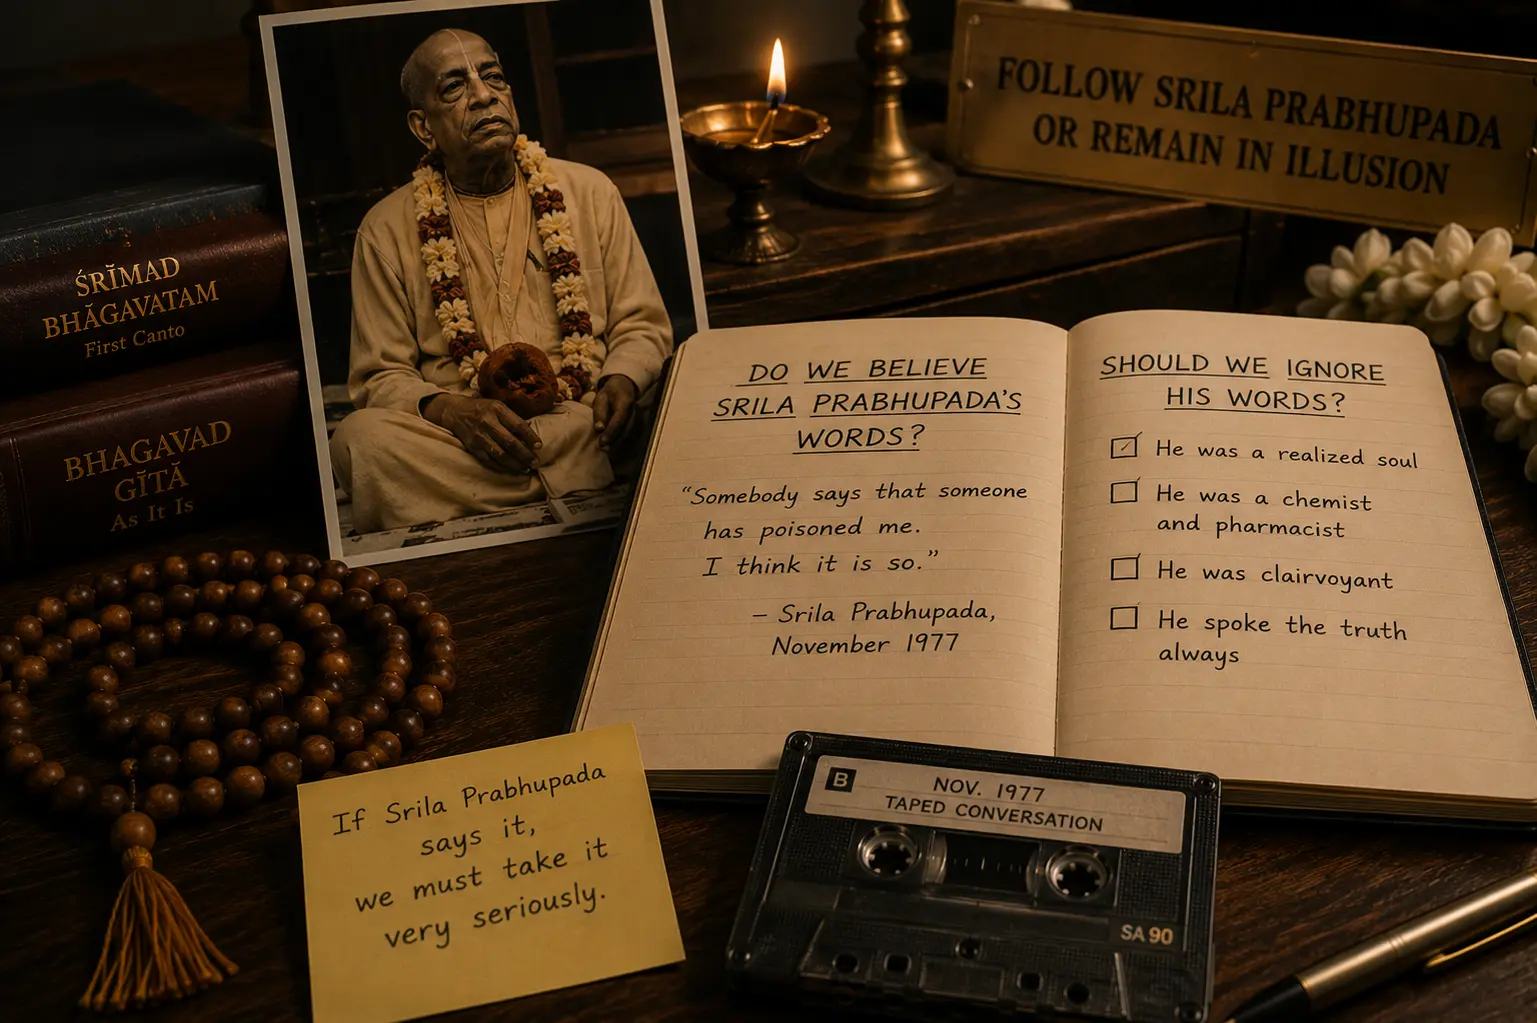 FOLLOW SRILA PRABHUPADA
OR REMAIN IN ILLUSION
ŚRĪMAD
BHĀGAVATAM
First Canto
BHAGAVAD
GĪTĀ
As It Is
DO WE BELIEVE
SRILA PRABHUPADA'S
WORDS?
"Somebody says that someone
has poisoned me.
I think it is so."
– Srila Prabhupada,
November 1977
SHOULD WE IGNORE
HIS WORDS?
He was a realized soul
He was a chemist
and pharmacist
He was clairvoyant
He spoke the truth
always
If Srila Prabhupada
says it,
we must take it
very seriously.
B
NOV. 1977
TAPED CONVERSATION
SA 90